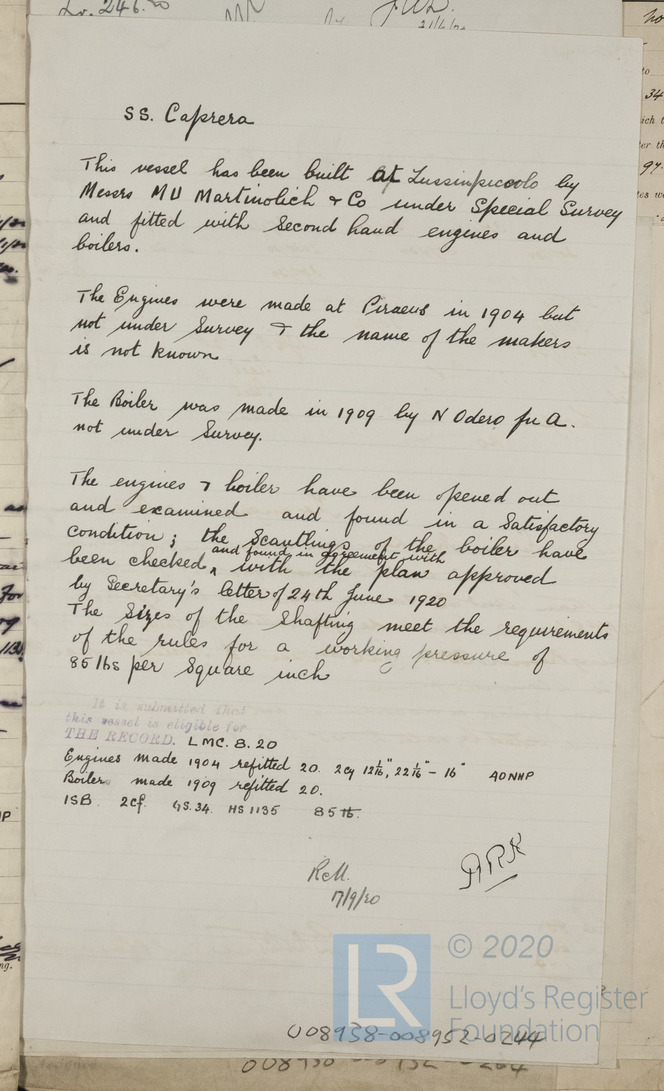 Lr. 246.20
21/6/20
SS. Caprera
This vessel has been built at Lussinpiccolo by
Messrs M U Martinolich & Co under Special Survey
and fitted with Second hand engines and
boilers.
The Engines were made at Piraeus in 1904 but
not under Survey & the name of the makers
is not known
The Boiler was made in 1909 by N Odero fu A.
not under Survey.
The engines & boiler have been opened out
and examined and found in a Satisfactory
condition; the Scantlings of the boiler have
and found in agreement with
been checked, with the plan approved
by Secretary's letter of 24th June 1920
The Sizes of the Shafting meet the requirements
of the rules for a working pressure of
85 lbs per Square inch
It is submitted that
this vessel is eligible for
THE RECORD. LMC. 8. 20
Engines made 1904 refitted 20. 2cy 40NHP
Boilers made 1909 refitted 20.
1SB 2cf. GS. 34. HS 1135 85 lb.
7/9/20
ARK
LR
© 2020
Lloyd's Register
Foundation
008938-008952-0244